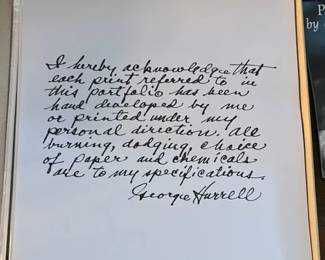 I hereby acknowledge that
each print referred to in
this portfolio has been
hand developed by me
or printed under my
personal direction. All
burning, dodging, choice
of paper and chemicals
are to my specifications.
George Hurrell
P
by